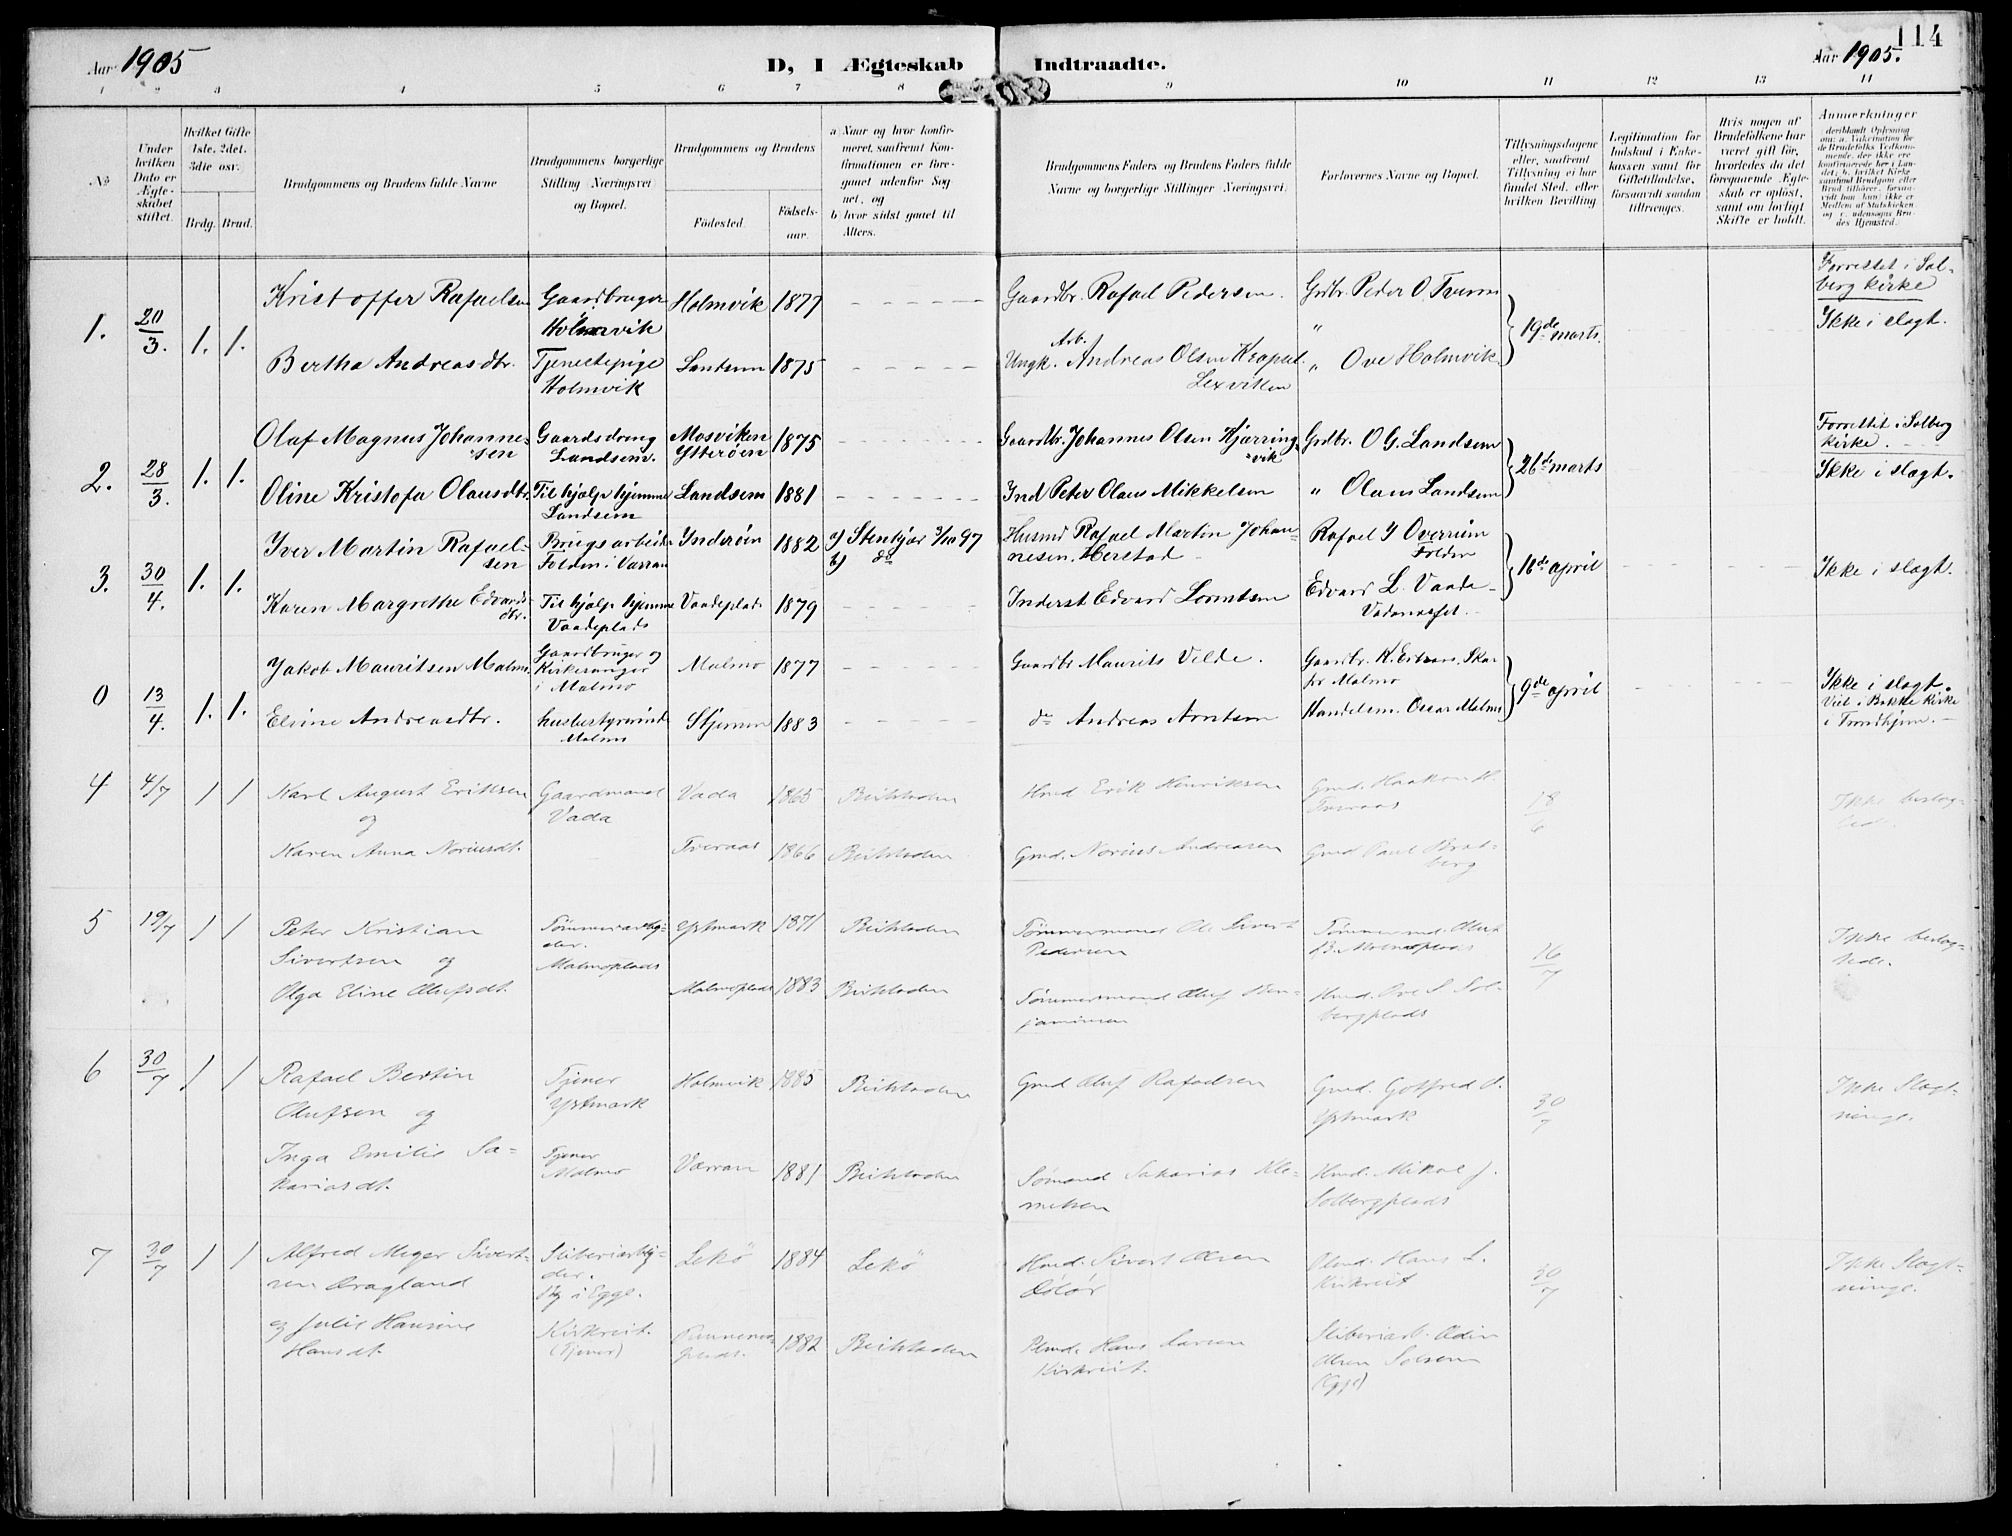 Aar 1905
D, I Ægteskab Indtraadte.
Aar 1905.
114
1 2 3 4 5 6 7 8 9 10 11 12 13 14
No
Under hvilken Dato er Ægteskabet stiftet.
Hvilket Gifte 1ste, 2det, 3die osv.
Brdg. Brud.
Brudgommens og Brudens fulde Navne
Brudgommens borgerlige Stilling Næringsvei og Bopæl.
Brudgommens og Brudens
Födested.
Födsels-aar.
a Naar og hvor konfirmeret, saafremt Konfirmationen er foregaaet udenfor Sognet, og
b hvor sidst gaaet til Alters.
Brudgommens Faders og Brudens Faders fulde Navne og borgerlige Stillinger Næringsvei.
Forlovernes Navne og Bopæl.
Tillysningsdagene eller, saafremt Tillysning ei har fundet Sted, efter hvilken Bevilling
Legitimation for Indskud i Enkekassen samt for Giftetilladelse, forsaavidt saadan tiltrænges.
Hvis nogen af Brudefolkene har været gift för, hvorledes da det foregaaende Ægteskab er oplöst, samt om lovligt Skifte er holdt.
Anmerkninger
1. 20/3. 1. 1. Kristoffer Rafaelsen Gaardbruger Holmvik Holmvik 1877 Gaardbr. Rafael Pedersen. Grdbr. Peder O. 19de marts. Forrettet i Solberg kirke Ikke i slægt.
Bertha Andreasdtr. Tjenestepige Holmvik Landsem 1875 Ungk. Arb. Andreas Olsen Lexviken " Ove Holmvik
2. 28/3. 1. 1. Olaf Magnus Johannessen Gaardsdreng Landsem. Mosviken Ytterøen 1875 Gaardbr. Johannes Olsen Hjørringvik Grdbr. O G. Landsem 26de marts Forrettet i Solberg kirke. Ikke i slægt.
Oline Kristofa Olausdtr. Til hjælp hjemme Landsem Landsem 1881 Ind Peter Olaus Mikkelsen " Olaus Landsem
3. 30/4. 1. 1. Iver Martin Rafaelsen Brugsarbeider Folden i Værran Inderøen 1882 a) Stenkjær 3/10 97 b) do Husmd Rafael Martin Johannesen, Herstad Rafael J Overrein Folden 16de april Ikke i slægt.
Karen Margrethe Edvardsdtr. Til hjælp hjemme Vaadeplads Vaadeplads 1879 Inderst Edvard Lorentsen Edvard L. Vaade
0 13/4. 1. 1. Jakob Mauritsen Malmo. Gaardbruger og Kirkesanger i Malmo Malmo 1877 Gaardbr Maurits Velde. Gaardbr. K. Malmo 9de april Ikke i slægt. Viet i Bakke kirke i Trondhjem.
Elvine Andreasdtr. husbestyrerinde Malmo Stjernen 1883 do Andreas Arntsen Handelsm. Oscar Malmo
4 4/7 1 1 Karl August Eriksen og Gaardmand Vada Vada 1865 Beitstaden Hmd Erik Henriksen Gmd. Haakon H. Tveraas 18/6 Ikke beslægtede.
Karen Anna Noriusdt. Tveraas 1866 Beitstaden Gmd. Norius Andreasen Gmd Paul Bratberg
5 19/7 1 1 Peter Kristian Sivertsen og Tømmerarbeider. Malmoplads Østmark 1871 Beitstaden Tømmermand Ole Sivert Pedersen Tømmermd. Olut B. Malmoplads 16/7 Ikke beslægtede.
Olga Eline Olufsdt. Malmoplads 1883 Beitstaden Tømmermand Oluf Benjaminsen Hmd. Ove S Solbergplads
6 30/7 1 1 Rafael Bertin Olufsen og Tjener Østmark Holmvik 1885 Beitstaden Gmd Oluf Rafaelsen Gmd. Gotfred O. Østmark 30/7 Ikke Slægtninge.
Inga Emilie Sakariasdt. Tjener Malmo Værran 1881 Beitstaden Sømand Sakarias Klemetsen Hmd. Mikal J. Solbergplads
7 30/7 1 1 Alfred Meyer Sivertsen Dragland Sliberiarbeider. By i Egge. Lekö 1884 Lekö Hmd. Sivert Olsen Hans L. Kirkreit 30/7 Ikke Slægtninge.
og Julie Hansine Hansdt. Kirkreit. (Tjener) 1882 Beitstaden Hans Larsen Kirkreit. Sliberiarb. Odin Olsen Solsem (Egge)